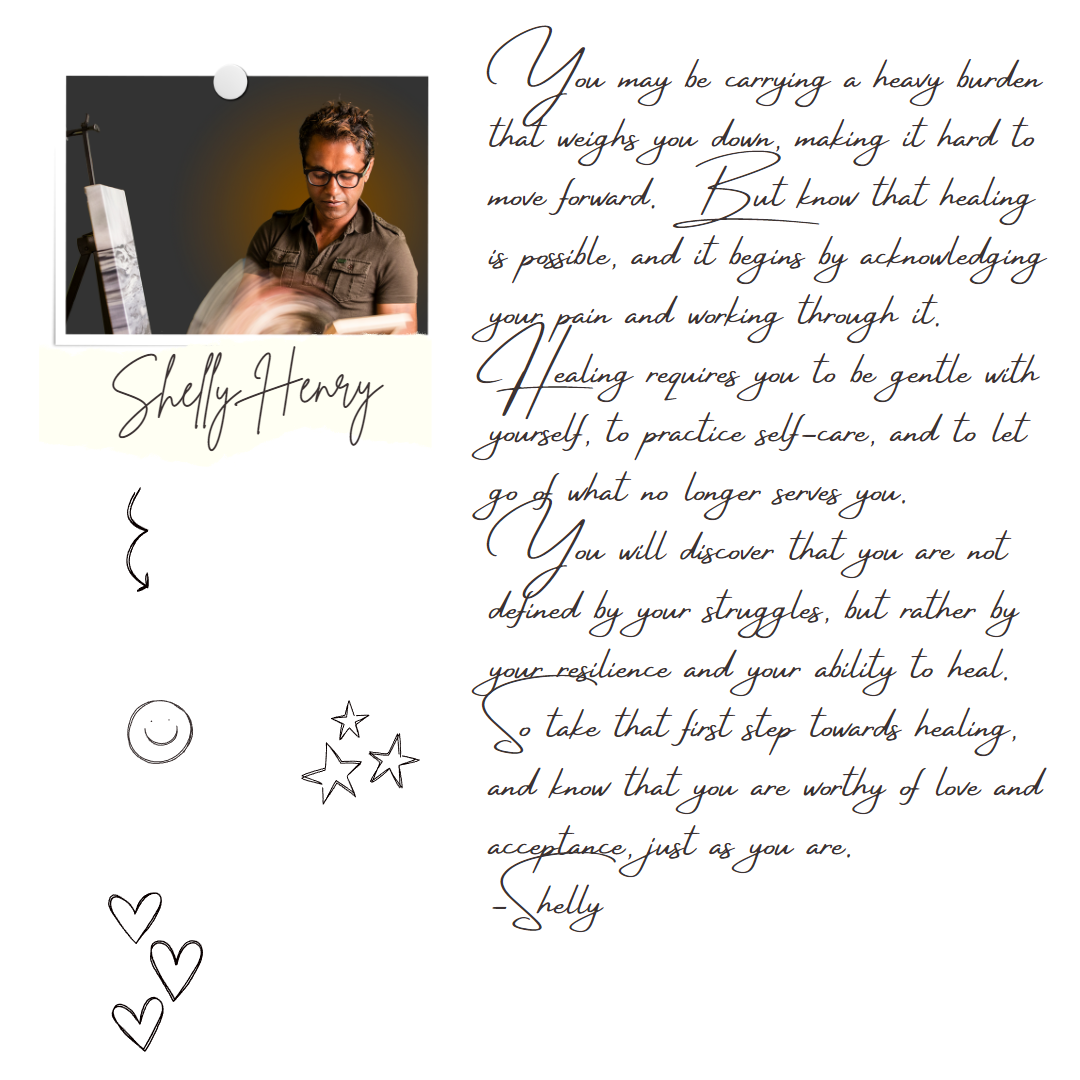 Shelly Henry
You may be carrying a heavy burden
that weighs you down, making it hard to
move forward. But know that healing
is possible, and it begins by acknowledging
your pain and working through it.
Healing requires you to be gentle with
yourself, to practice self-care, and to let
go of what no longer serves you.
You will discover that you are not
defined by your struggles, but rather by
your resilience and your ability to heal.
So take that first step towards healing,
and know that you are worthy of love and
acceptance, just as you are.
-Shelly